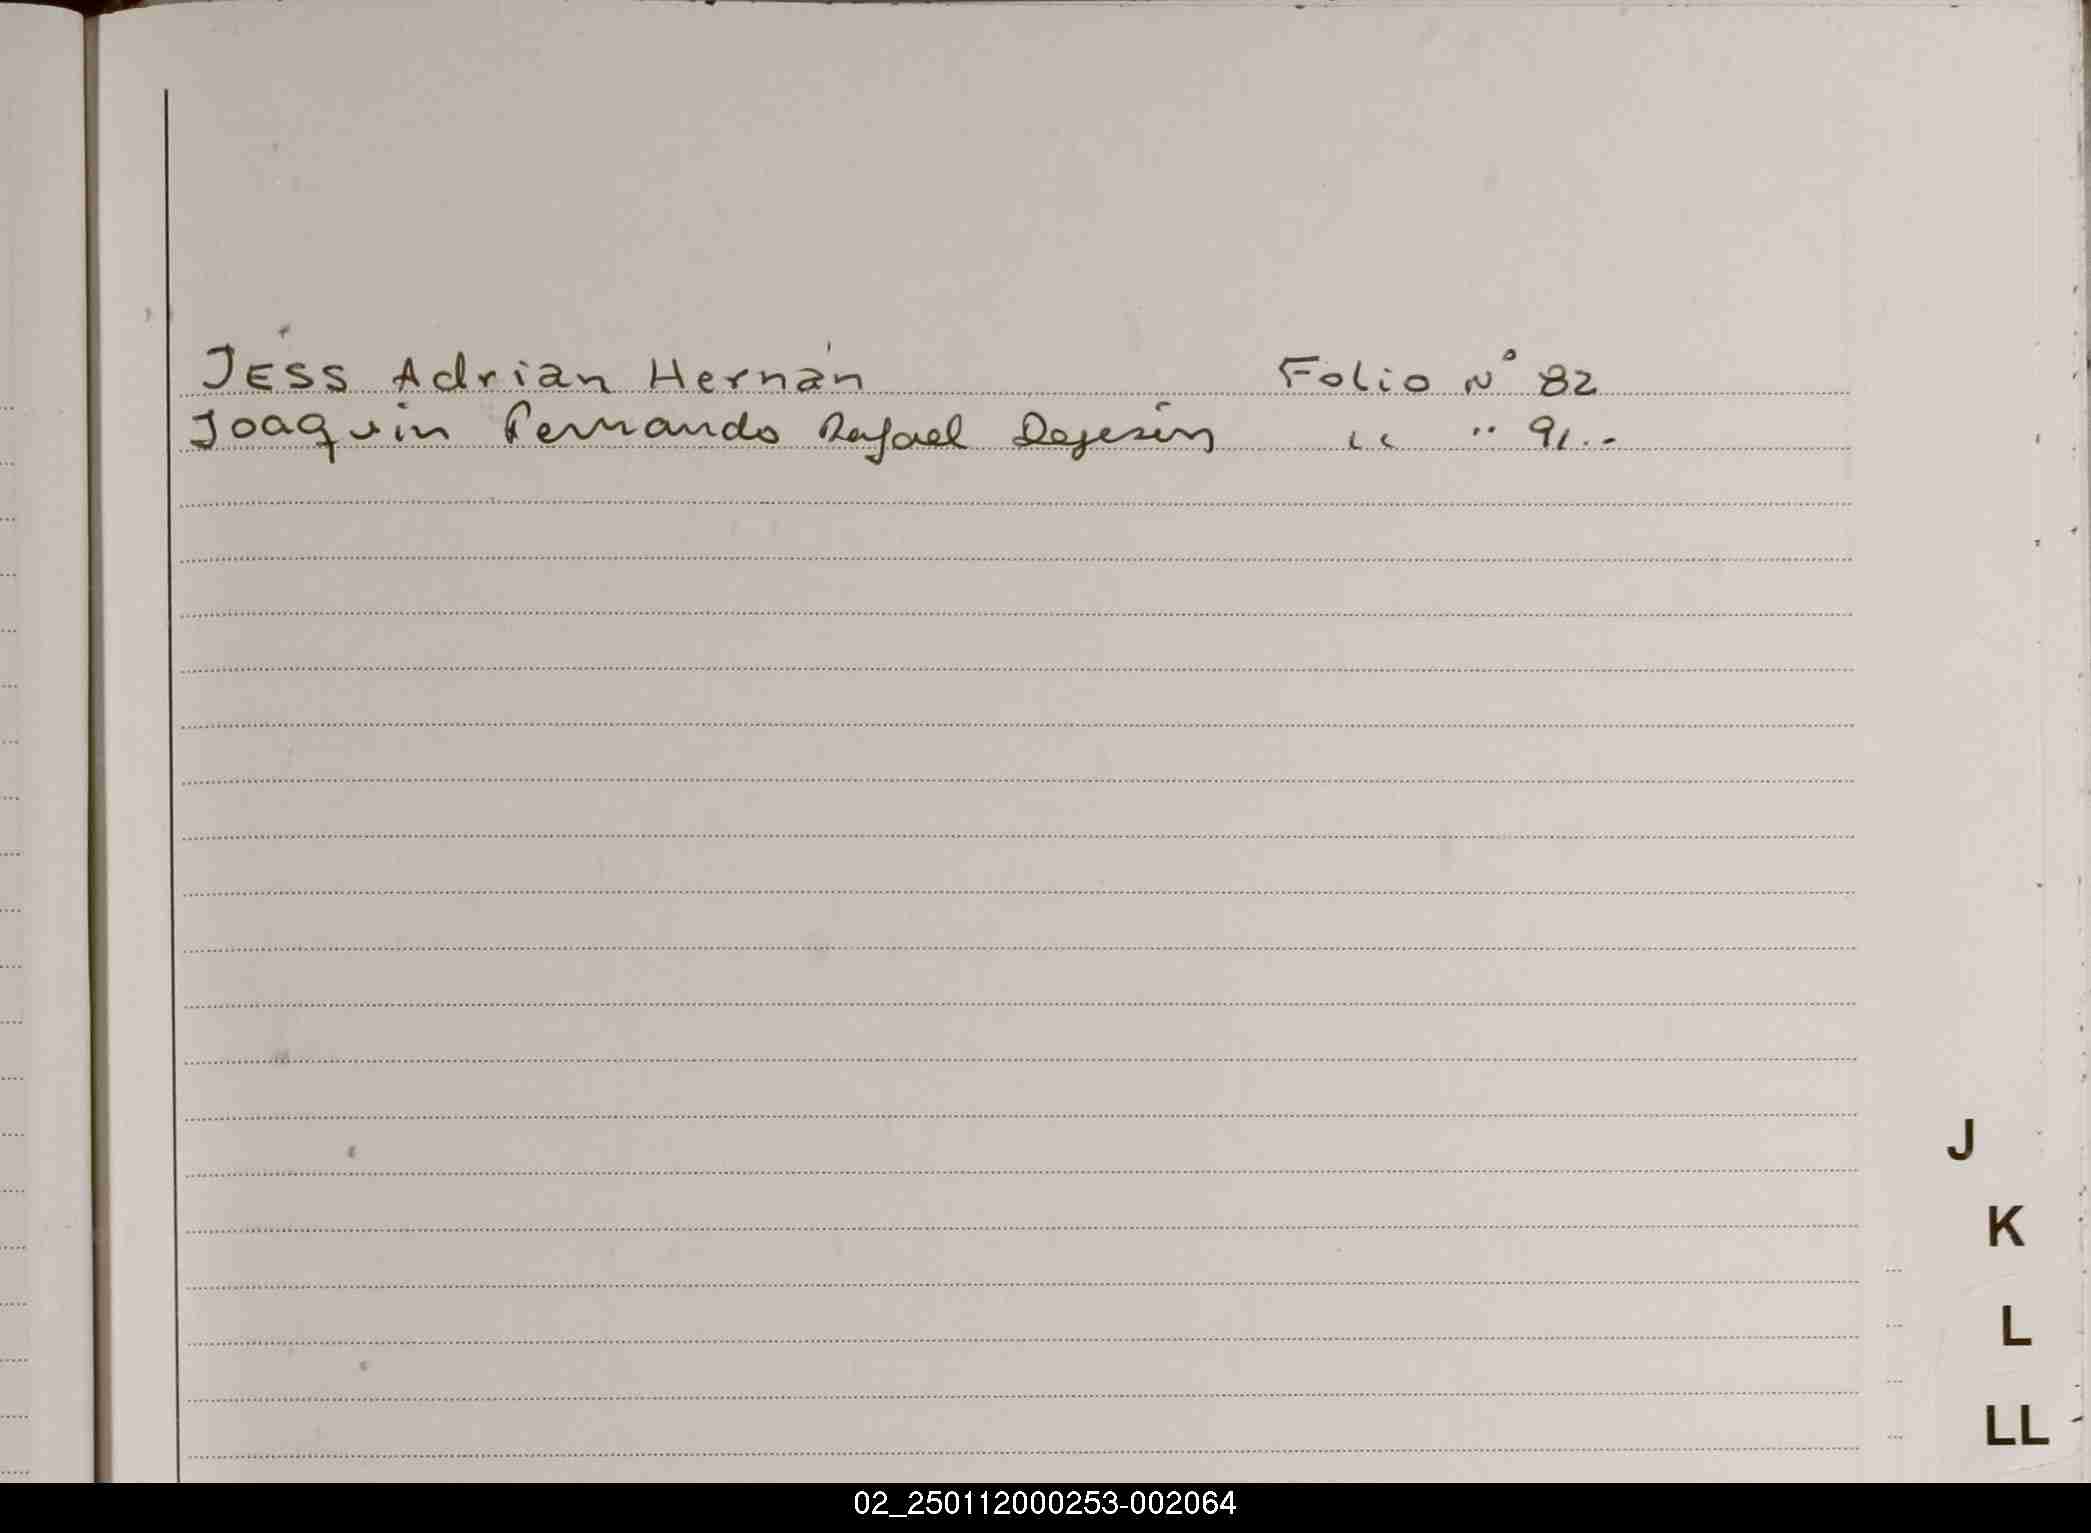 JESS Adrian Hernán Folio N° 82
Joaquin Fernando Rafael " " 91..-
J
K
L
LL
02_250112000253-002064